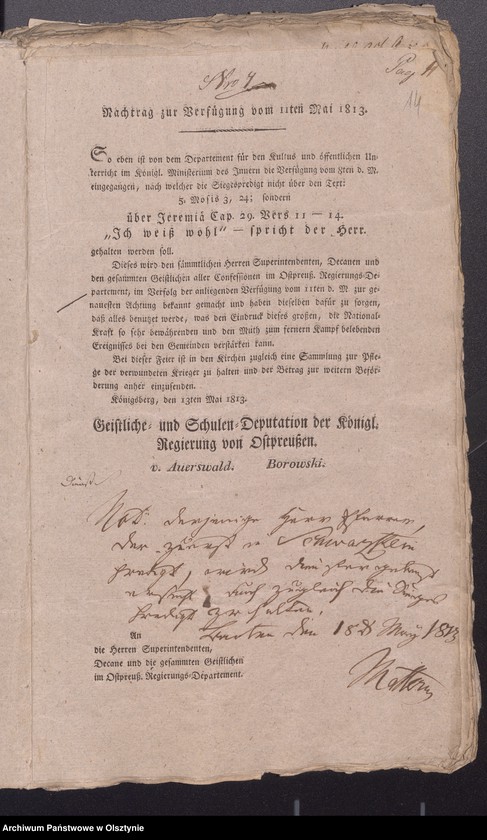 Pag 11
14
Nro 4
Nachtrag zur Verfügung vom 11ten Mai 1813.
So eben ist von dem Departement für den Kultus und öffentlichen Un-
terricht im Königl. Ministerium des Innern die Verfügung vom 8ten d. M.
eingegangen, nach welcher die Siegespredigt nicht über den Text:
5. Mosis 3, 24; sondern
über Jeremiä Cap. 29. Vers 11 — 14.
„Ich weiß wohl" — spricht der Herr.
gehalten werden soll.
Dieses wird den sämmtlichen Herren Superintendenten, Decanen und
den gesammten Geistlichen aller Confessionen im Ostpreuß. Regierungs-De-
partement, im Verfolg der anliegenden Verfügung vom 11ten d. M. zur ge-
nauesten Achtung bekannt gemacht und haben dieselben dafür zu sorgen,
daß alles benutzt werde, was den Eindruck dieses großen, die National-
Kraft so sehr bewährenden und den Muth zum fernern Kampf belebenden
Ereignisses bei den Gemeinden verstärken kann.
Bei dieser Feier ist in den Kirchen zugleich eine Sammlung zur Pfle-
ge der verwundeten Krieger zu halten und der Betrag zur weitern Beför-
derung anher einzusenden.
Königsberg, den 13ten Mai 1813.
Geistliche- und Schulen-Deputation der Königl.
Regierung von Ostpreußen.
v. Auerswald. Borowski.
Not: derjenige Herr Pfarrer,
der zuerst in Schwarzstein
predigt, wird
auch zugleich die Sieges
predigt zu halten.
Barten den 18t May 1813
An
die Herren Superintendenten,
Decane und die gesammten Geistlichen
im Ostpreuß. Regierungs-Departement.
Archiwum Państwowe w Olsztynie